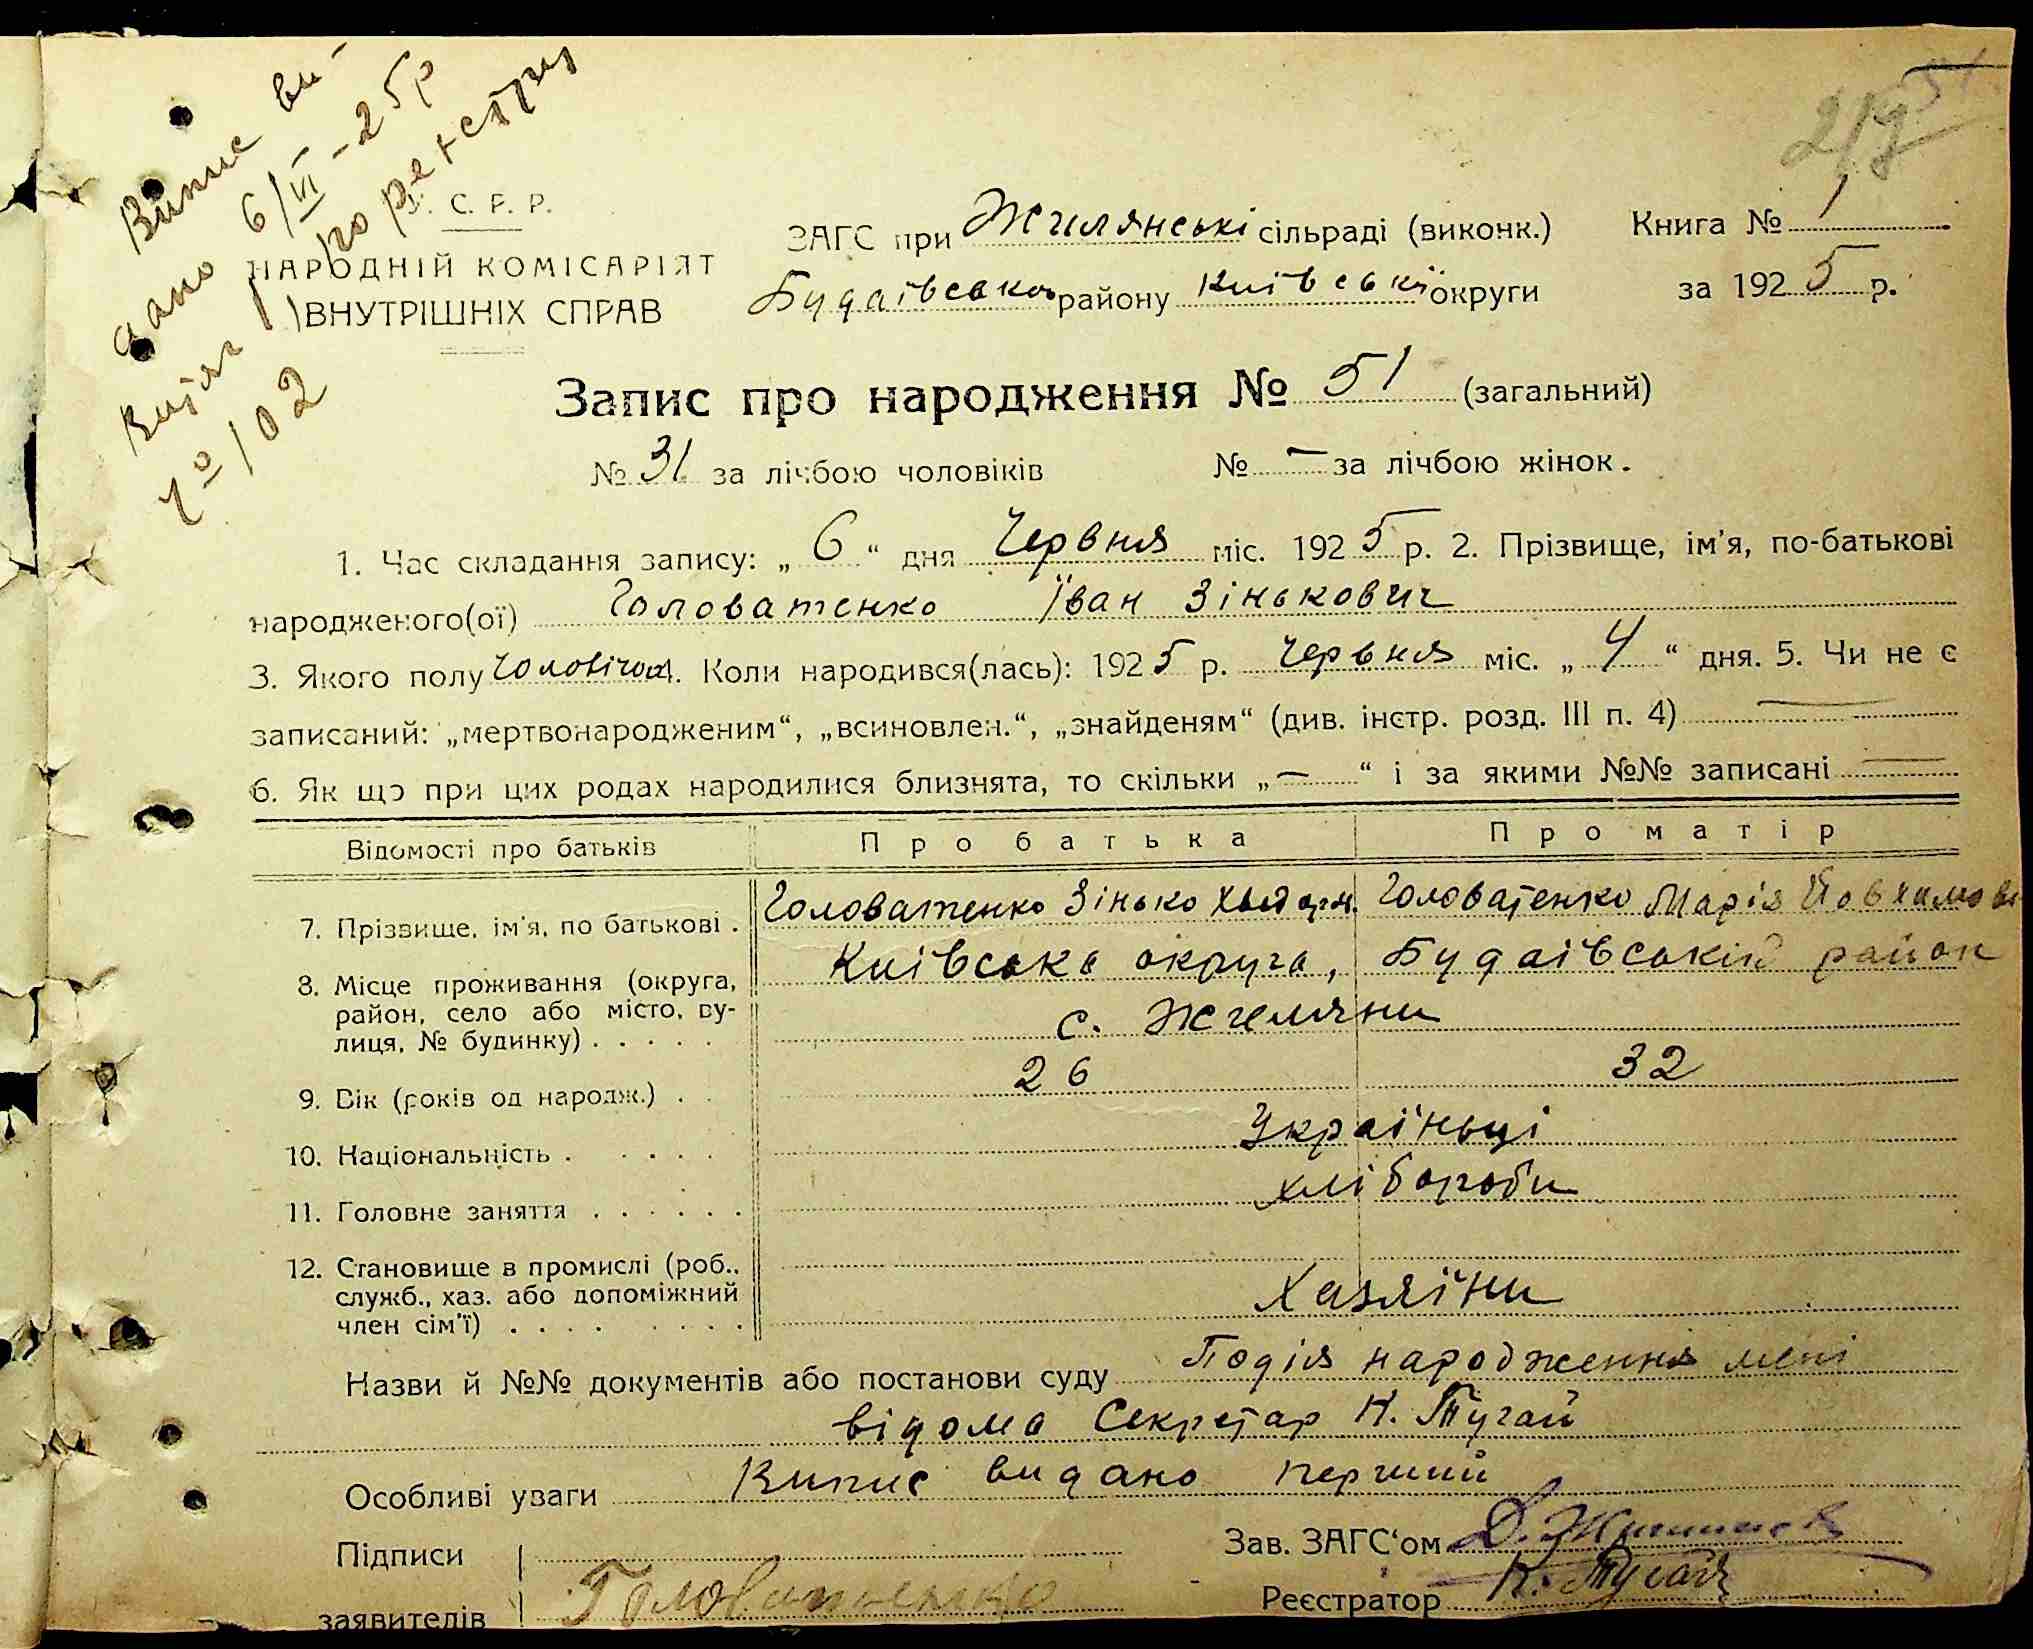 Випис ви-
дано 6/VI-25р
по реєстру
№ 102
219 51
. С. Р. Р.
НАРОДНІЙ КОМІСАРІЯТ
ВНУТРІШНІХ СПРАВ
ЗАГС при Жилянські сільраді (виконк.) Книга № 1
Будаівсько району Київські округи за 1925 р.
Запис про народження № 51 (загальний)
№ 31 за лічбою чоловіків № — за лічбою жінок.
1. Час складання запису: „ 6 “ дня Червня міс. 1925 р. 2. Прізвище, ім'я, по-батькові
народженого(ої) Головатенко Їван Зінькович
3. Якого полу чоловічої 4. Коли народився(лась): 1925 р. Червня міс. „ 4 “ дня. 5. Чи не є
записаний: „мертвонародженим“, „всиновлен.“, „знайденям“ (див. інстр. розд. III п. 4) —
6. Як що при цих родах народилися близнята, то скільки „ — “ і за якими №№ записані —
Відомості про батьків Про батька Про матір
7. Прізвище, ім'я, по батькові . Головатенко Зінько Головатенко Марія
8. Місце проживання (округа, Київська округа, Будаівський район
район, село або місто, ву- с. Жиляни
лиця, № будинку) . . . . .
9. Вік (років од народж.) . . 26 32
10. Національність . . . . . Україньці
11. Головне заняття . . . . . . хлібороби
12. Становище в промислі (роб.,
служб., хаз. або допоміжний Хазяїни
член сім'ї) . . . . . . . .
Назви й №№ документів або постанови суду Подія народження мені
відома Секретар К. Тугай
Особливі уваги Випис видано перший
Підписи Зав. ЗАГС'ом Д.
заявителів Головатенко Реєстратор К. Тугай